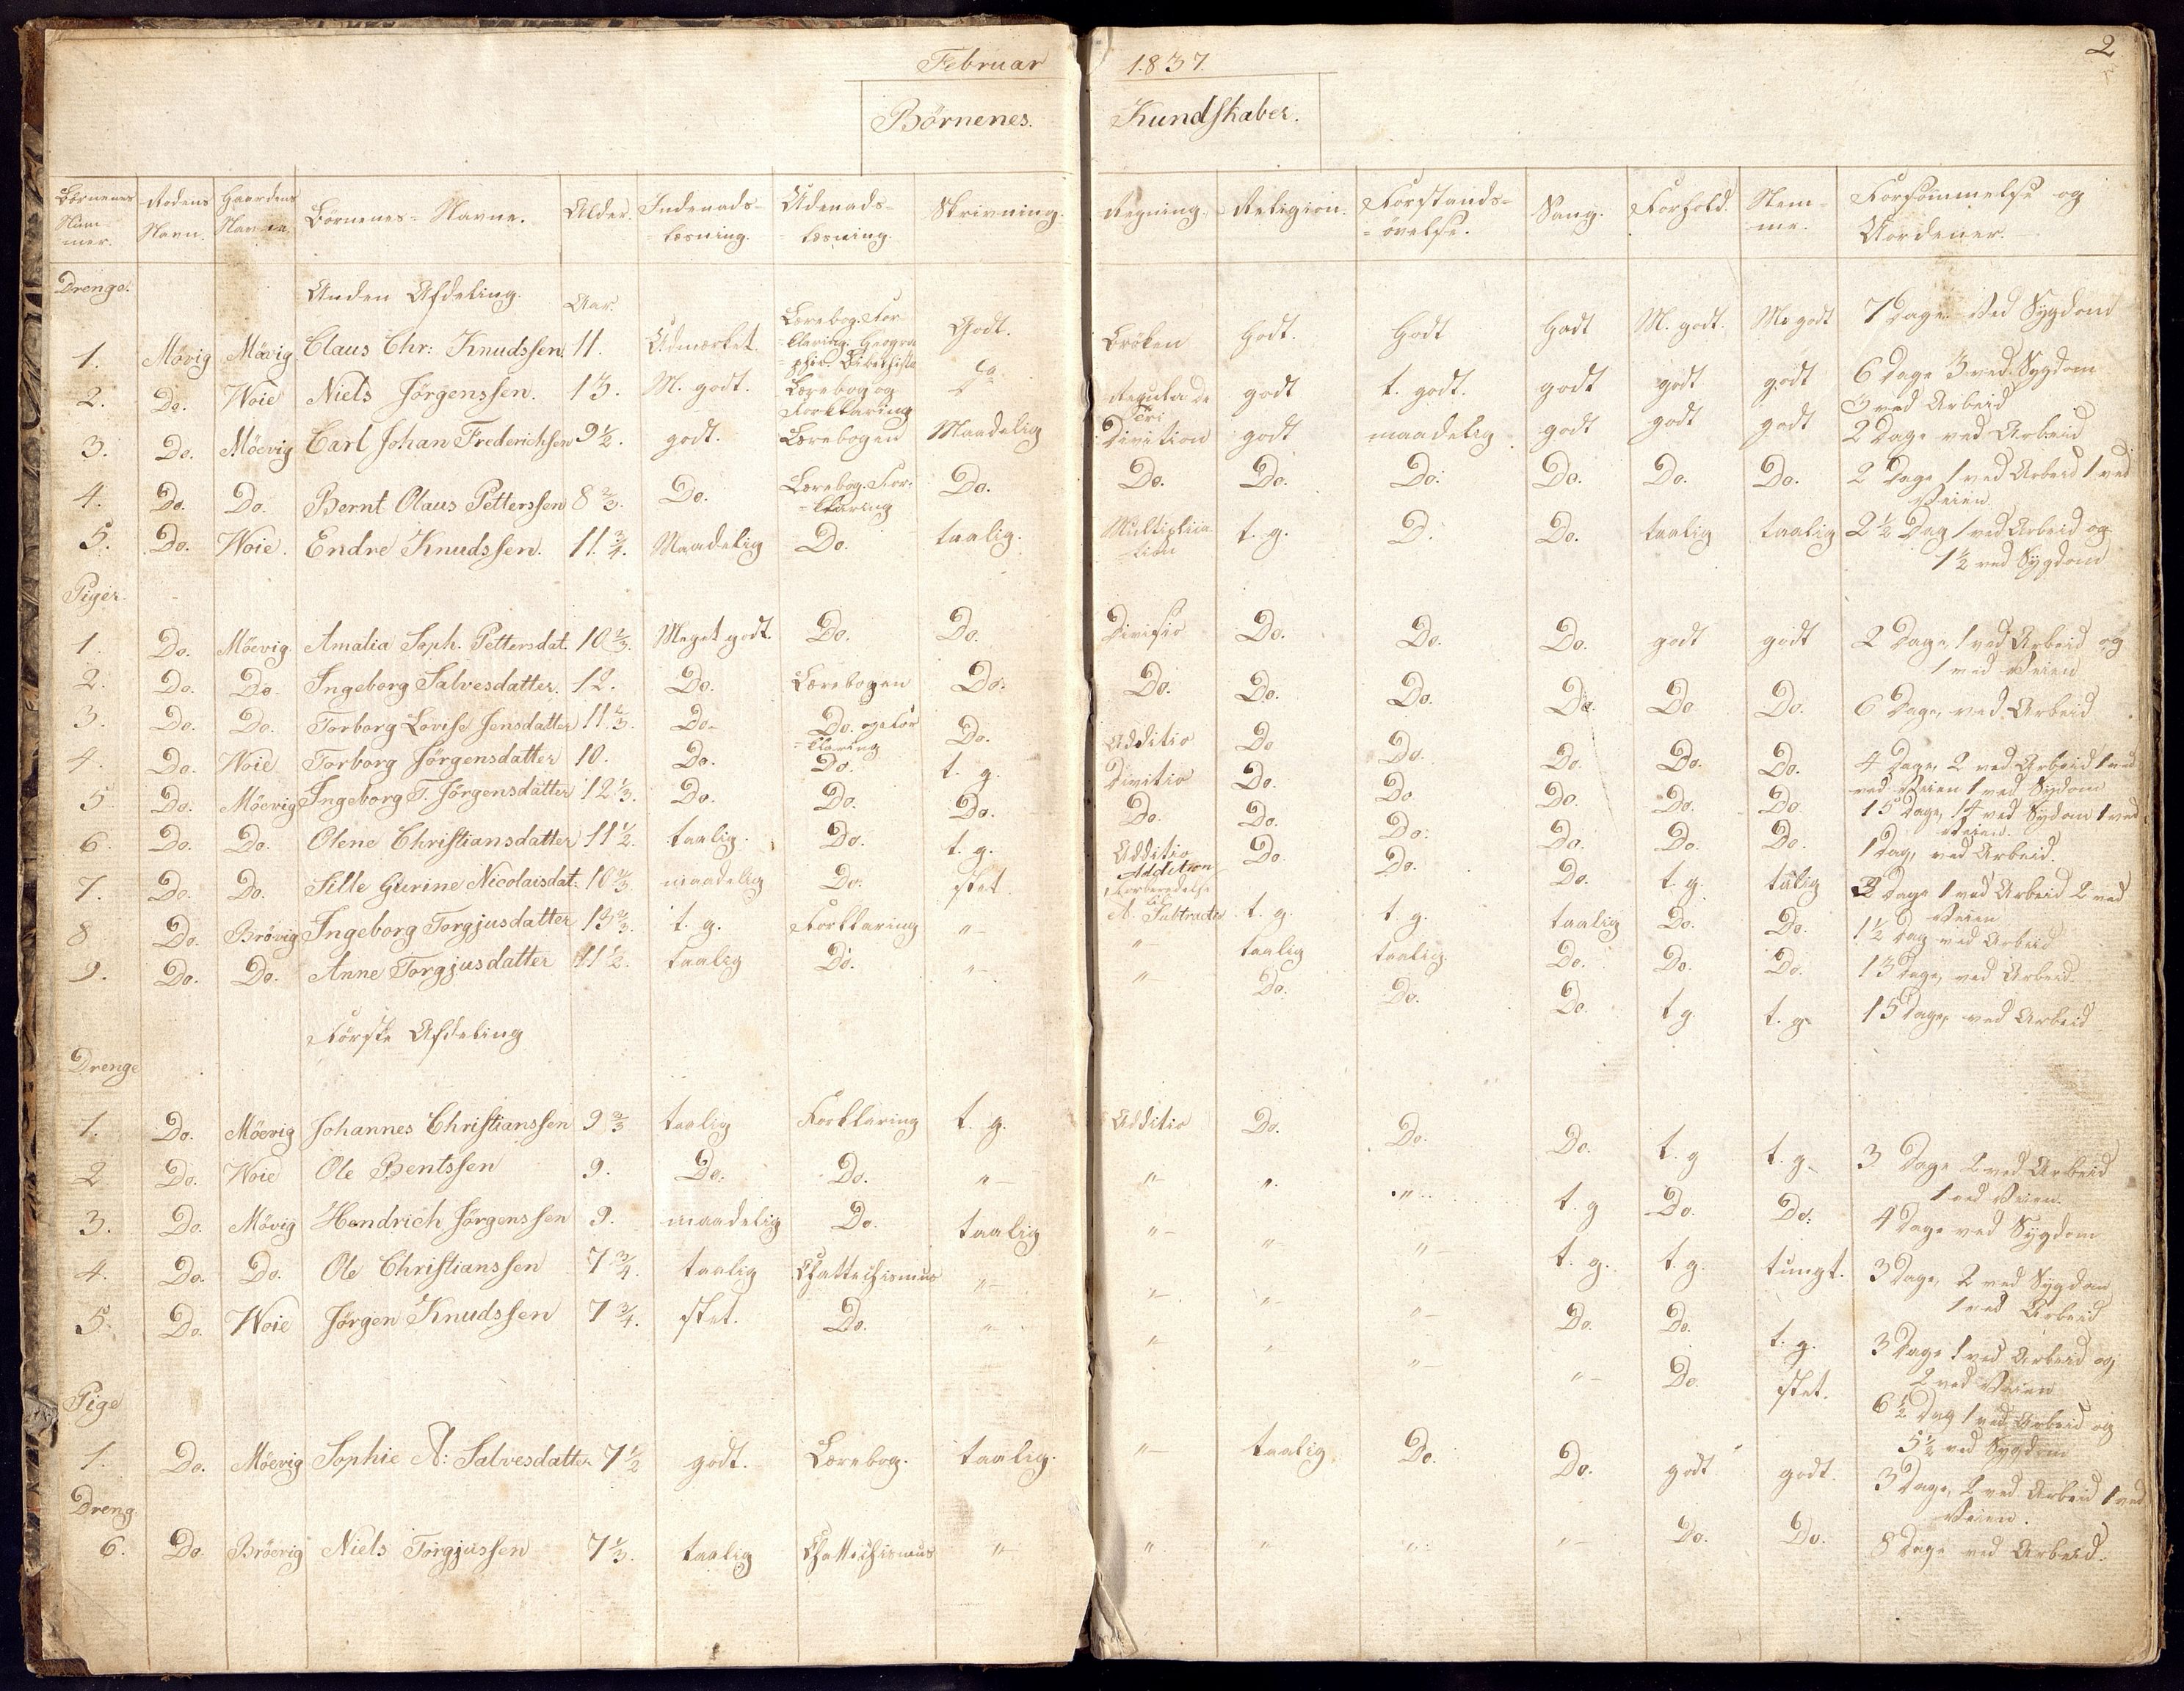 Februar 1837. 2
Börnenes. Kundskaber.
Börnenes Nummer. Rodens Navn. Gaardens Navne. Börnenes-Navne. Alder. Indenads-læsning. Udenads-læsning. Skrivning. Regning. Religion. Forstands-övelse. Sang. Forhold. Nemme. Forsömmelse og Uordener.
Drenge. Anden Afdeling. Aar.
1. Mövig Mövig Claus Chr: Knudssen 11. Udmærket. Lærebog. Forklaring. Geographie. Godt. Bröken Godt. Godt Godt M. godt. M. godt 7 Dage. Ved Sygdom
2. Do. Woie Niels Jörgenssen. 13. M. godt. Lærebog og Forklaring Do Regula de Tri godt t. godt. godt godt godt 6 Dage 3 ved Sygdom 3 ved Arbeid
3. Do. Möevig Carl Johan Frederichsen 9½. godt. Lærebogen Maadelig Divition godt maadelig godt godt godt 2 Dage ved Arbeid
4. Do. Do. Bernt Olaus Petterssen 8⅔. Do. Lærebog. Forklaring Do. Do. Do. Do. Do. Do. Do. 2 Dage 1 ved Arbeid 1 ved Veien
5. Do. Woie. Endre Knudssen. 11¾. Maadelig Do. taalig. Multiplication t. g. D. Do. taalig taalig 2½ Dag 1 ved Arbeid og 1½ ved Sygdom
Piger
1. Do. Möevig Amalia Soph. Pettersdat. 10⅔. Meget godt. Do. Do. Divisio Do. Do. Do. godt godt 2 Dage, 1 ved Arbeid og 1 ved Veien
2. Do. Do. Ingeborg Salvesdatter. 12. Do. Lærebogen Do. Do. Do. Do. Do. Do Do. 6 Dage, ved Arbeid
3. Do. Do. Torborg Lovise Jensdatter 11⅔. Do. Do. og Forklaring Do. Additio Do Do. Do. Do. Do. 4 Dage, 2 ved Arbeid 1 ved Veien 1 ved Sydom
4. Do. Woie Torborg Jörgensdatter 10. Do. Do. t. g. Divitio Do. Do Do. Do. Do. 15 Dage, 14 ved Sydom 1 ved Veien.
5 Do. Möevig Ingeborg T. Jörgensdatter 12⅓. Do. Do. Do. Do. Do. Do. Do. Do. Do. 1 Dag, ved Arbeid.
6. Do. Do. Olene Christiansdatter 11½. taalig. Do. t. g. Additio Do. Do. Do. t. g. talig 3 Dage 1 ved Arbeid 2 ved Veien
7. Do. Do. Sille Gurine Nicolaisdat. 10⅔. maadelig Do. slet. Addition Forberedelse til Subtractio t. g. t. g. taalig Do. Do. 1½ Dag ved Arbeid
8 Do. Brövig Ingeborg Torgjusdatter 13⅔. t. g. Forklaring "- "- taalig taalig. Do. Do. Do. 13 Dage, ved Arbeid.
9. Do. Do. Anne Torgjusdatter 11½. taalig Do. "- "- Do. Do. Do. t g. t. g. 15 Dage, ved Arbeid
Förste Afdeling
Drenge
1. Do. Möevig Johannes Christianssen 9⅔ taalig Forklaring t. g. Additio Do. Do. Do. t. g t. g. 3 Dage 2 ved Arbeid 1 ved Veien.
2 Do. Woie Ole Bentssen 9. Do. Do. "- "- ". ".. t. g Do. Do. 4 Dage ved Sygdom
3. Do. Mövig Hendrich Jörgenssen 9. maadelig Do. taalig "- "- "- t. g. t. g. tungt. 3 Dage, 2 ved Sygdom 1 ved Arbeid
4. Do. Do. Ole Christianssen 7¾. taalig Chattechismus "- "- "- "- Do. Do. t. g. 3 Dage 1 ved Arbeid og 2 ved Veien
5. Do. Woie Jörgen Knudssen 7¾. slet. Do. "- "- " "- "- Do. slet. 6½ Dag 1 ved Arbeid og 5½ ved Sygdom
Pige
1. Do. Möevig Sophie A: Salvesdatter 7½ godt. Lærebog. taalig. "- taalig Do. Do. godt godt. 3 Dage, 2 ved Arbeid 1 ved Veien.
Dreng.
6. Do. Bröevig Niels Torgjussen 7⅓. taalig Chattechismus "- ". " ". "- Do. Do. 8 Dage ved Arbeid.